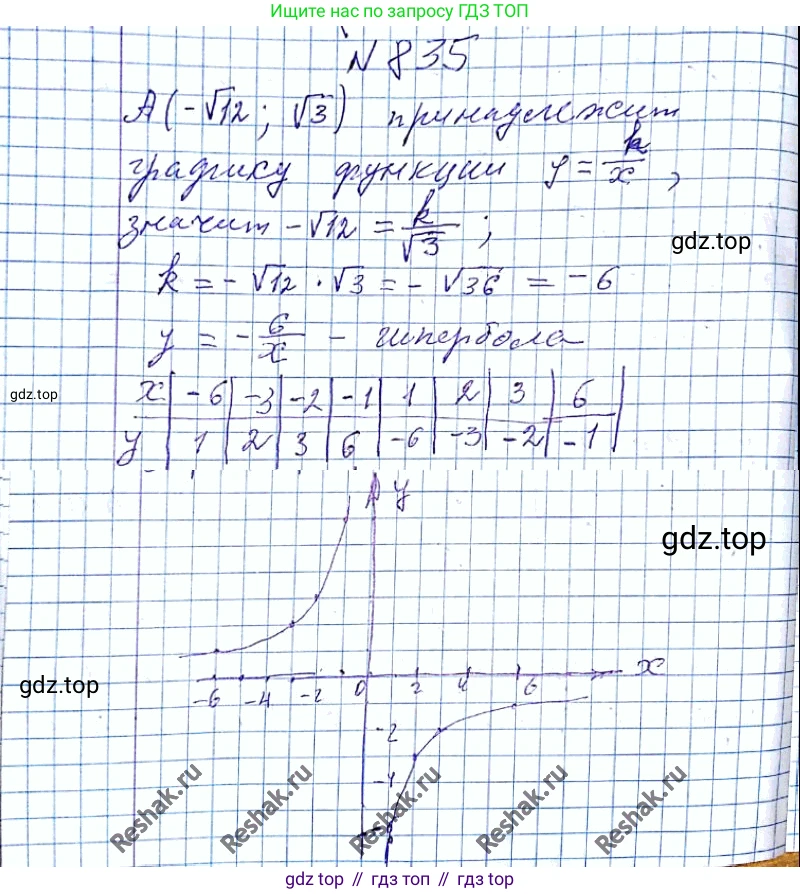 Ищите нас по запросу ГДЗ ТОП
N 835
A(-√12; √3) принадлежит
графику функции y = k/x,
значит -√12 = k/√3;
gdz.top
k = -√12 · √3 = -√36 = -6
y = -6/x - гипербола
gdz.top
x | -6 | -3 | -2 | -1 | 1 | 2 | 3 | 6 |
y | 1 | 2 | 3 | 6 | -6 | -3 | -2 | -1 |
y
gdz.top
x
gdz.top
-6 -4 -2 0 2 4 6
-2
-4
Reshak.ru Reshak.ru Reshak.ru Reshak.ru
gdz top // гдз топ // gdz top